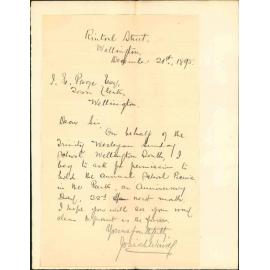 Rintoul Street,
Wellington,
December 21st, 1895.
J. E. Page Esq,
Town Clerk,
Wellington.
Dear Sir
On behalf of the
Trinity Wesleyan Sunday
School Wellington South, I
beg to ask for permission to
hold the annual School Picnic
in the Park, on Anniversary
Day, 22nd next month
I hope you will see your way
clear to grant us the favor.
Yours faithfully